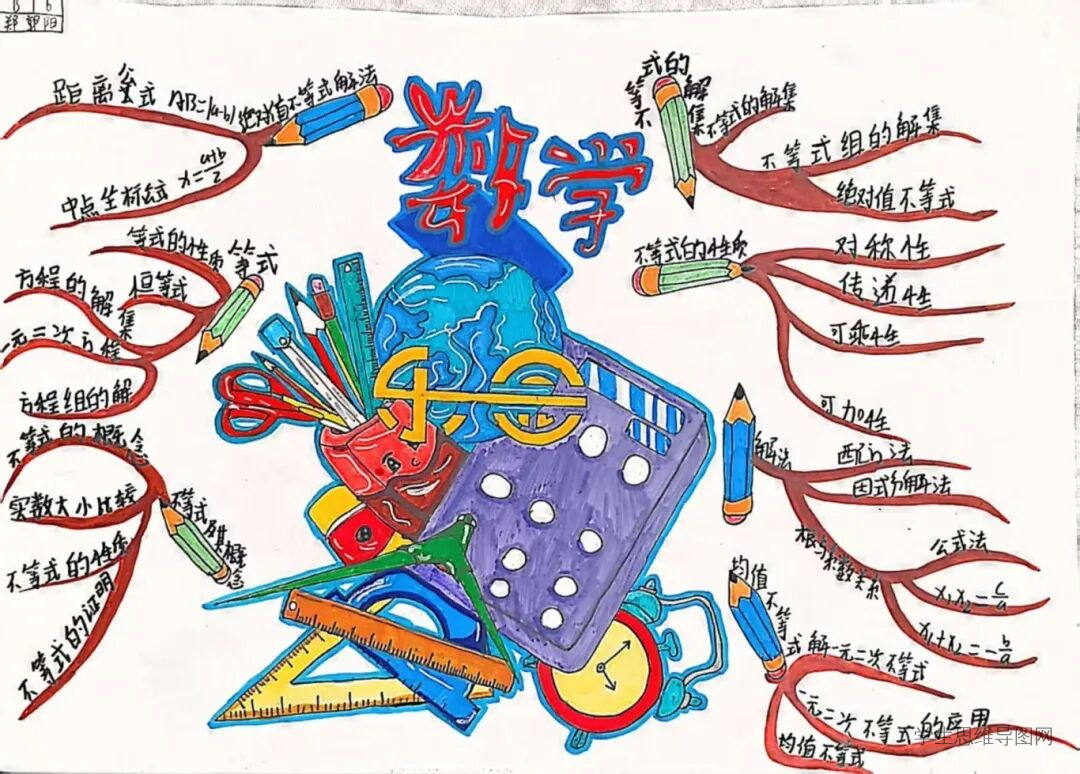 郑朝阳
数学
距离公式 AB=|a-b|
绝对值不等式解法
中点坐标公式 x=a+b/2
等式
等式的性质
恒等式
方程的解集
一元二次方程
方程组的解
不等式及其概念
不等式的概念
实数大小比较
不等式的性质
不等式的证明
不等式的解集
不等式的解集
不等式组的解集
绝对值不等式
不等式的性质
对称性
传递性
可乘性
可加性
解法
配方法
因式分解法
根与系数关系
公式法
x₁x₂=c/a
x₁+x₂=-b/a
均值不等式
解一元二次不等式
一元二次不等式的应用
均值不等式
学生思维导图网